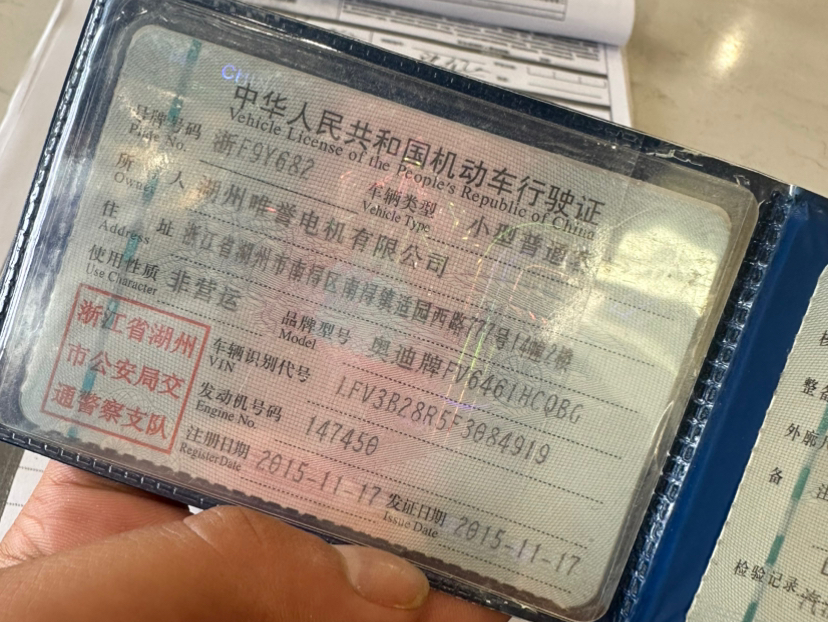 中华人民共和国机动车行驶证
Vehicle License of the People's Republic of China
号牌号码 浙F9Y682 车辆类型 小型普通客
Plate No. Vehicle Type
所有人 湖州唯誉电机有限公司
Owner
住址 浙江省湖州市南得区南得镇适园西路777号14幢2楼
Address
使用性质 非营运 品牌型号 奥迪牌FV6461HCQBG
Use Character Model
浙江省湖州
市公安局交
通警察支队
车辆识别代号 LFV3B28R5F3084919
VIN
发动机号码 147450
Engine No.
注册日期 2015-11-17 发证日期 2015-11-17
Register Date Issue Date
整备
外廓
备 注
检验记录